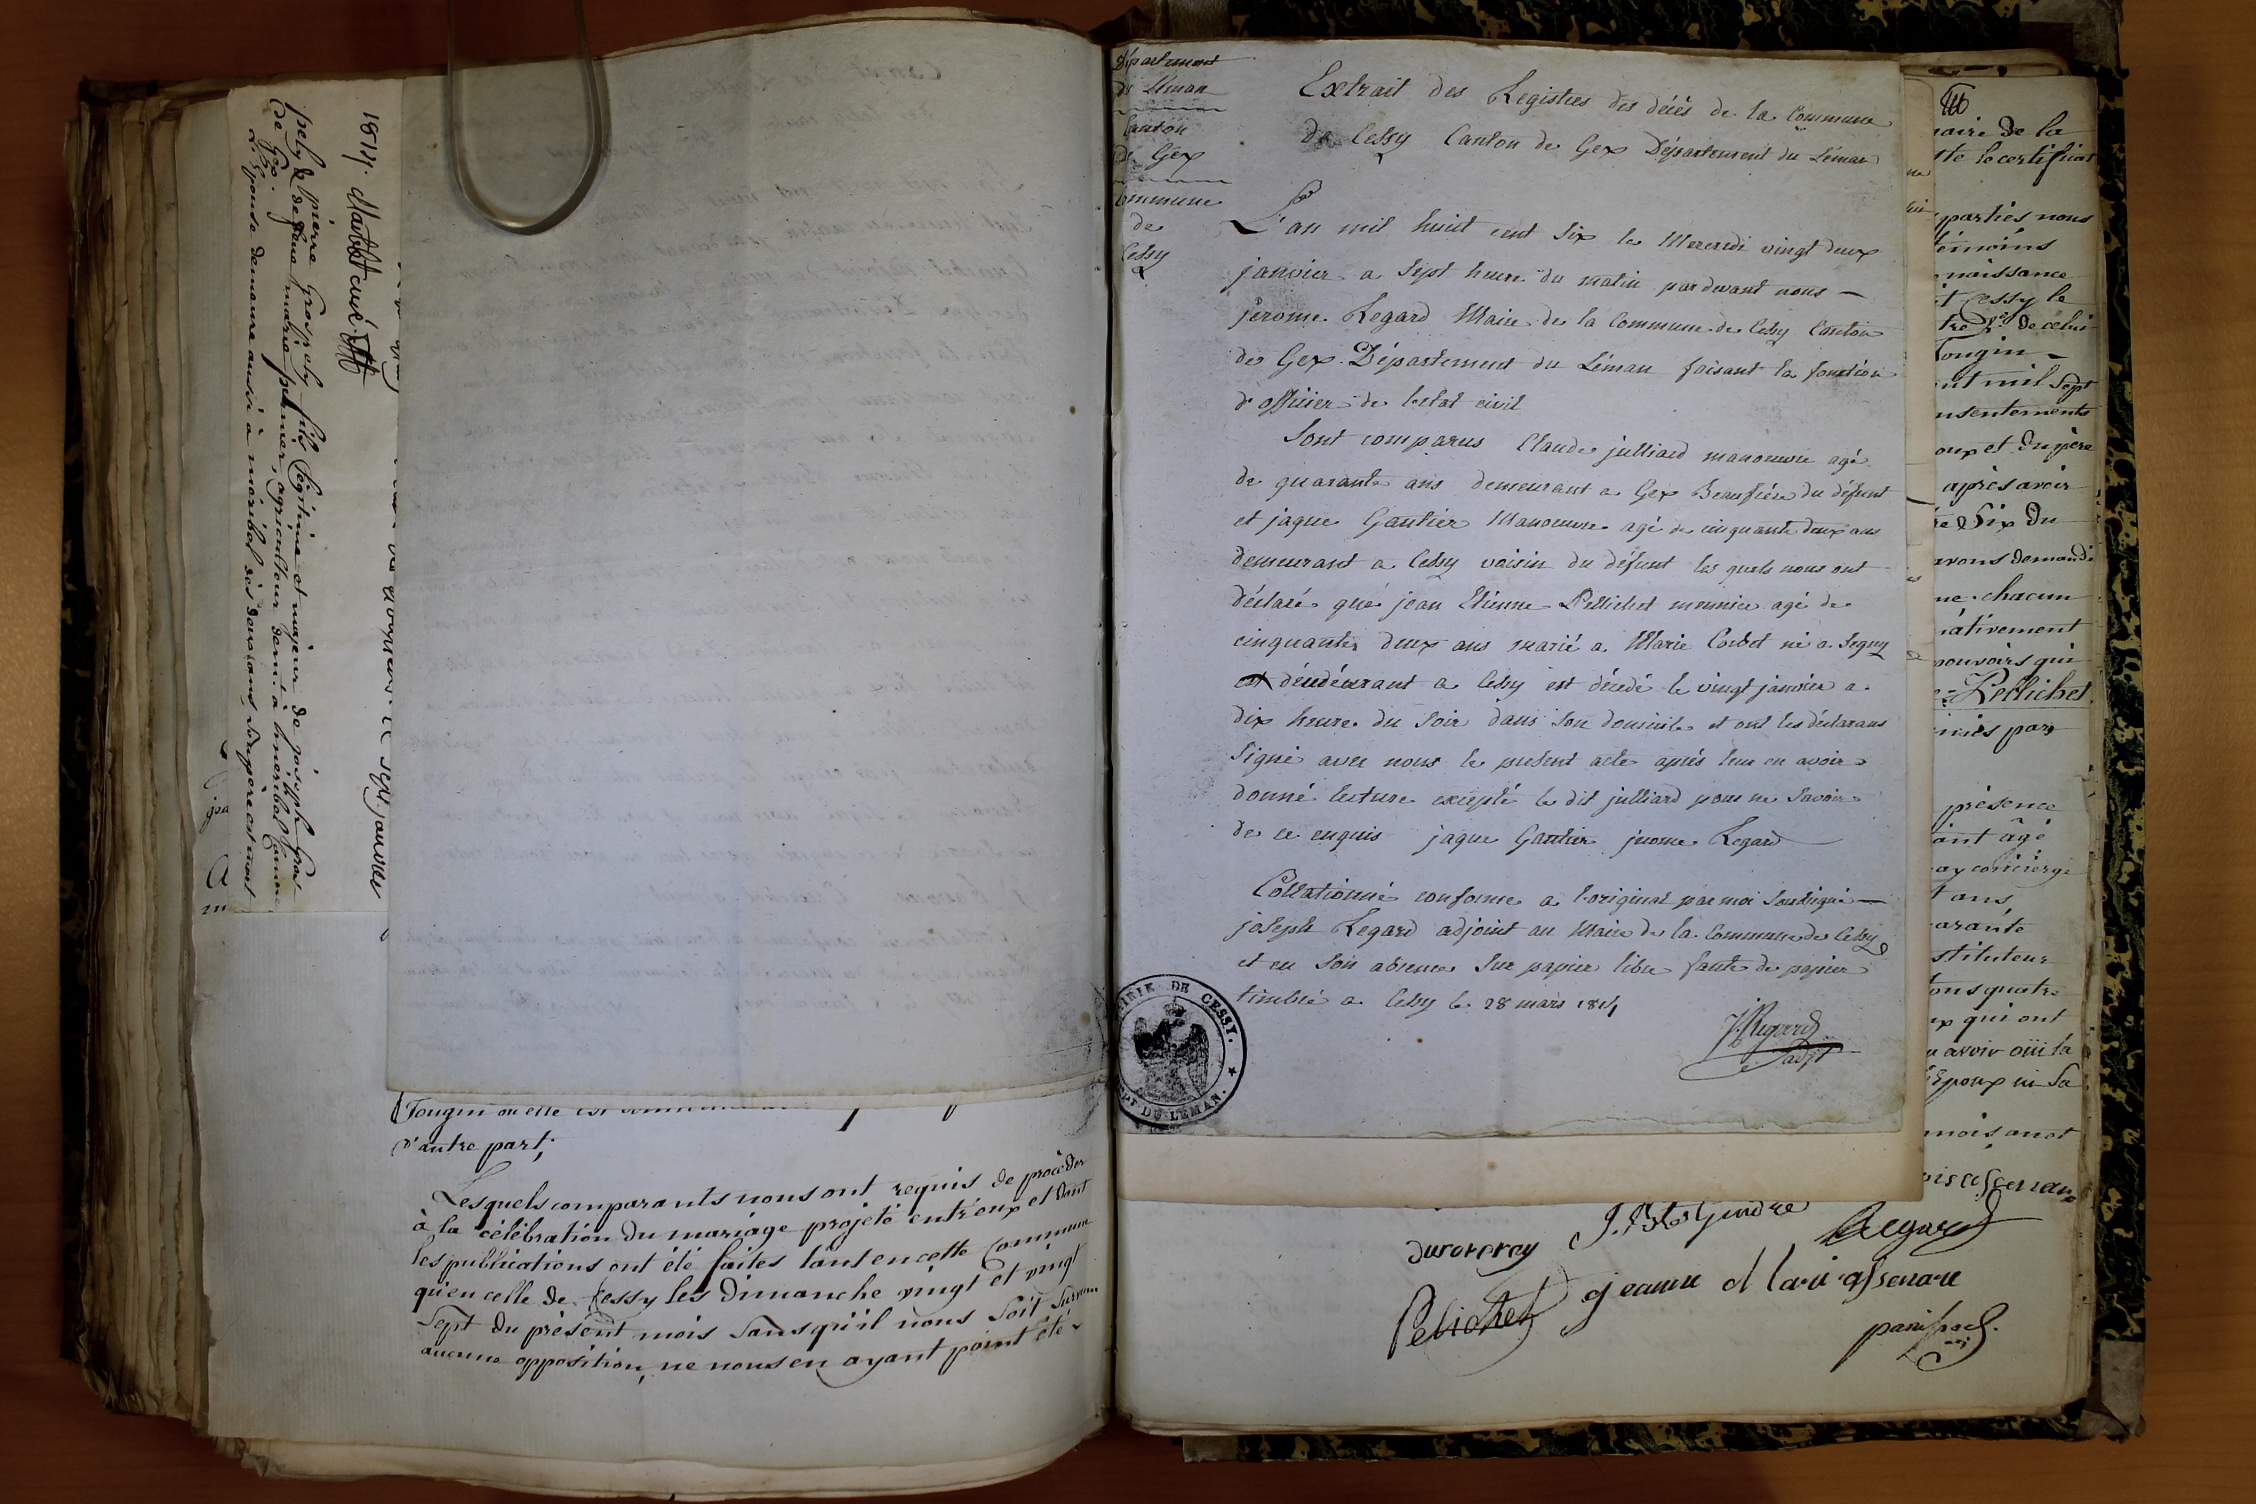 1814. Marbot curé
pierre Grospely fils légitime et majeur de joseph Gros
pely & de feue marie pannier, agriculteur dem.t à
de Gex.
L'épouse demeure aussi à depuis deux ans, son père est mort
Tougin ou elle est
d'autre part;
Lesquels comparants nous ont requis de procéder
à la célébration du mariage projeté entr'eux et dont
les publications ont été faites tant en cette Commune
qu'en celle de Cessy les Dimanche vingt et vingt
Sept du présent mois sans qu'il nous soit survenu
aucune opposition, ne nous en ayant point été
Département
du Léman
Canton
de Gex
Commune
de
Cessy
Extrait des Registres des décès de la Commune
de Cessy Canton de Gex Département du Léman
L'an mil huit cent six le Mercredi vingt deux
janvier a sept heure du matin par devant nous —
jerome Regard Maire de la Commune de Cessy Canton
de Gex Département du Léman faisant la fonction
d'officier de letat civil
Sont comparus Claude julliard manouvre agé
de quarante ans demeurant a Gex Beaufrére du défunt
et jaque Gautier Manouvre agé de cinquante deux ans
demeurant a Cessy voisin du défunt les quels nous ont
déclaré que jean Etienne Pellichet meunier agé de
cinquante deux ans marié a Marie Corbet né a Segny
demeurant a Cessy est décedé le vingt janvier a
dix heure du soir dans son domicile et ont les déclarans
signé avec nous le présent acte aprés leur en avoir
donné lecture excepté le dit julliard pour ne savoir
de ce enquis jaque Gautier jerome Regard
Collationné conforme a l'original par moi soussigné —
joseph Regard adjoint au Maire de la Commune de Cessy
et en son absence sur papier libre faute de papier
timbré a Cessy le 28 mars 1814
J. Regard
adjt
MAIRIE DE CESSY.
DEPT DU LEMAN.
maire de la
tte le certificat
parties nous
témoins
naissance
t Cessy le
tre Xre de celui
Tougin —
nt mil sept
nsentements
oux et du père
après avoir
Six du
avons demandé
ne chacun
mativement
pouvoirs qui
Pellichet
unis par
présence
ant âgé
ay concierge
t ans
arante
stituteur
ons quatre
x qui ont
avoir oui la
Epoux ni sa
mois an et
J. B. te Gendre
Regard
duroveray
Pelichet
jeanne Marie assenare